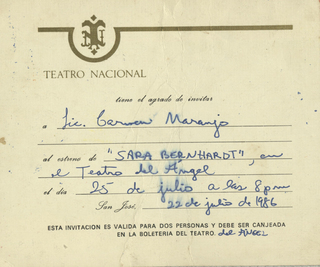 TEATRO NACIONAL
tiene el agrado de invitar
a Lic. Carmen Naranjo
al estreno de "SARA BERNHARDT", en
el Teatro del Angel
el día 25 de julio a las 8 pm
San José, 22 de julio de 1986
ESTA INVITACION ES VALIDA PARA DOS PERSONAS Y DEBE SER CANJEADA
EN LA BOLETERIA DEL TEATRO del ANGEL